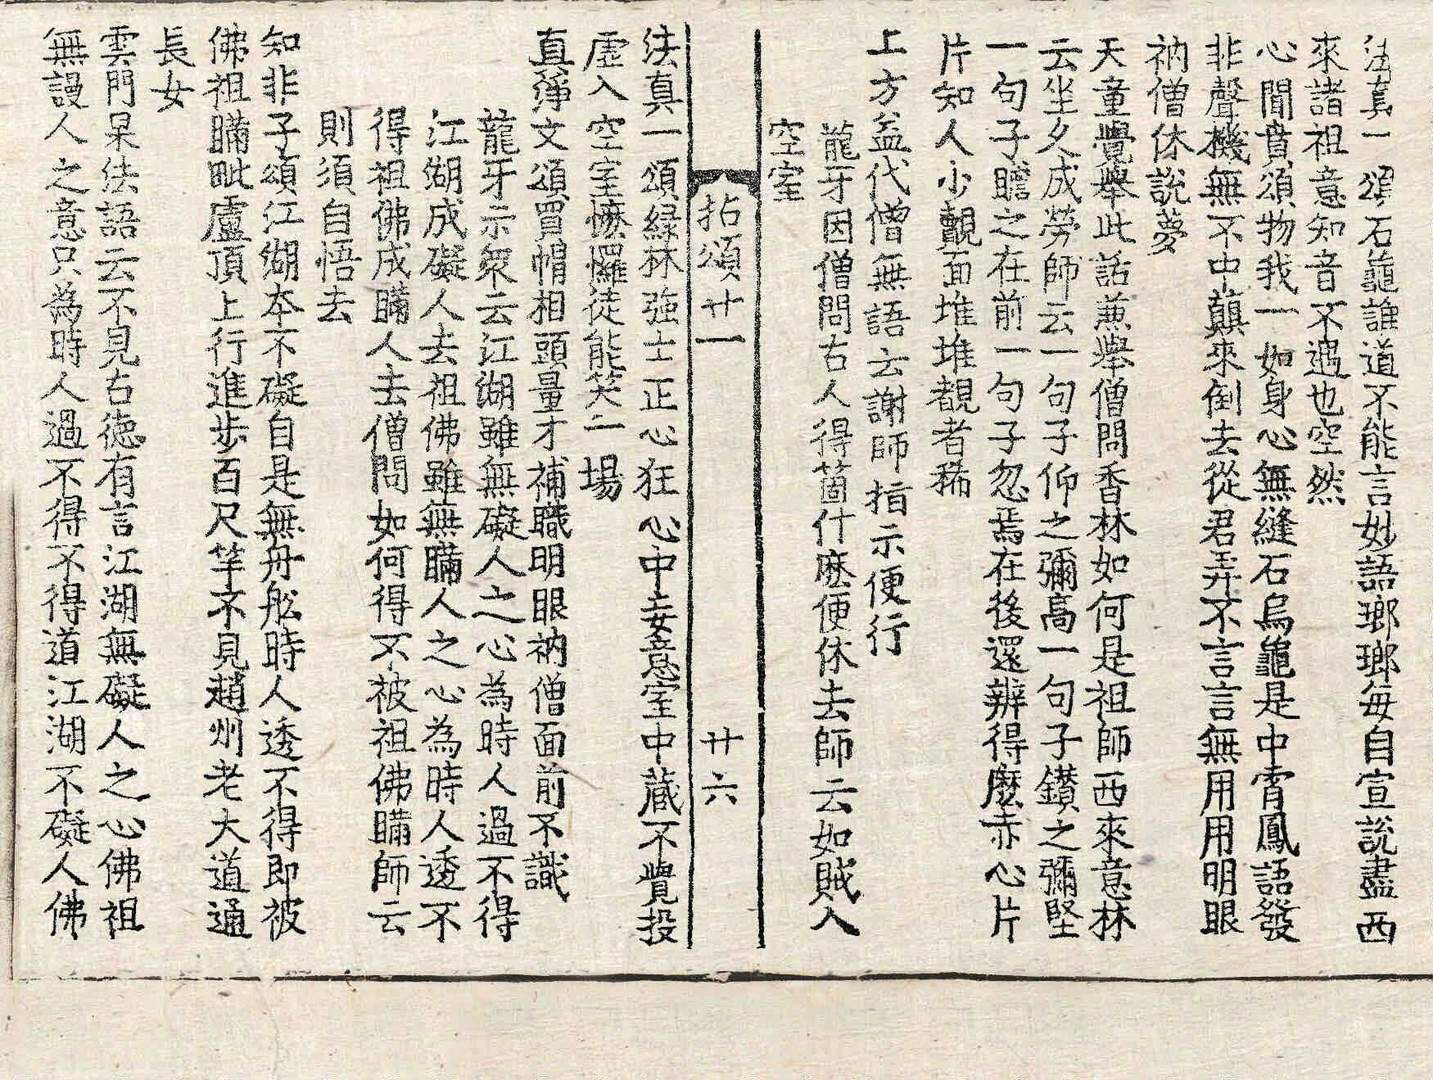 法真一頌石龜誰道不能言妙語瑯瑯每自宣說盡西
來諸祖意知音不遇也空然
心聞賁頌物我一如身心無縫石烏龜是中霄鳳語發
非聲機無不中顛來倒去從君弄不言言無用用明眼
衲僧休說夢
天童覺舉此話兼舉僧問香林如何是祖師西來意林
云坐久成勞師云一句子仰之彌高一句子鑽之彌堅
一句子瞻之在前一句子忽焉在後還辨得麽赤心片
片知人少覿面堆堆覩者稀
上方益代僧無語云謝師指示便行
龍牙因僧問古人得箇什麽便休去師云如賊入
空室
拈頌廿一
廿六
法真一頌緑林強士正心狂心中妄意室中藏不覺投
虛入空室懡㦬徒能笑一場
真淨文頌買帽相頭量才補職明眼衲僧面前不識
龍牙示衆云江湖雖無礙人之心為時人過不得
江湖成礙人去祖佛雖無瞞人之心為時人透不
得祖佛成瞞人去僧問如何得不被祖佛瞞師云
則須自悟去
知非子頌江湖本不礙自是無舟舩時人透不得即被
佛祖瞞毗盧頂上行進步百尺竿不見趙州老大道通
長女
雲門杲法語云不見古徳有言江湖無礙人之心佛祖
無謾人之意只為時人過不得不得道江湖不礙人佛